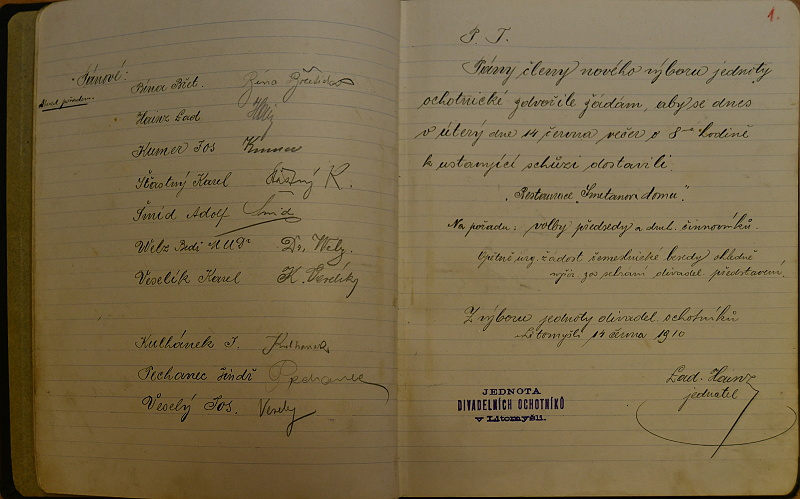 Pánové:
Pína Břet. Pína Břetislav
Hainz Lad
Kumer Jos Kumer
Šťastný Karel Šťastný K.
Šmíd Adolf Šmíd
Welz Bedř MUDr Dr. Welz.
Veselík Karel K. Veselík
Kulhánek J. Kulhánek
Pechanec Jindř Pechanec
Veselý Jos. Veselý
1.
P. T.
Pány členy nového výboru jednoty
ochotnické zdvořile žádám, aby se dnes
v úterý dne 14 června večer o 8 hodině
k ustavující schůzi dostavili.
Restaurace „Smetanova domu".
Na pořadu: volby předsedy a druh. činnovníků.
žádost řemeslnické besedy ohledně
za sehrání divadel. představení.
Z výboru jednoty divadel. ochotníků
Litomyšli 14 června 1910
JEDNOTA
DIVADELNÍCH OCHOTNÍKŮ
v Litomyšli.
Lad. Hainz
jednatel